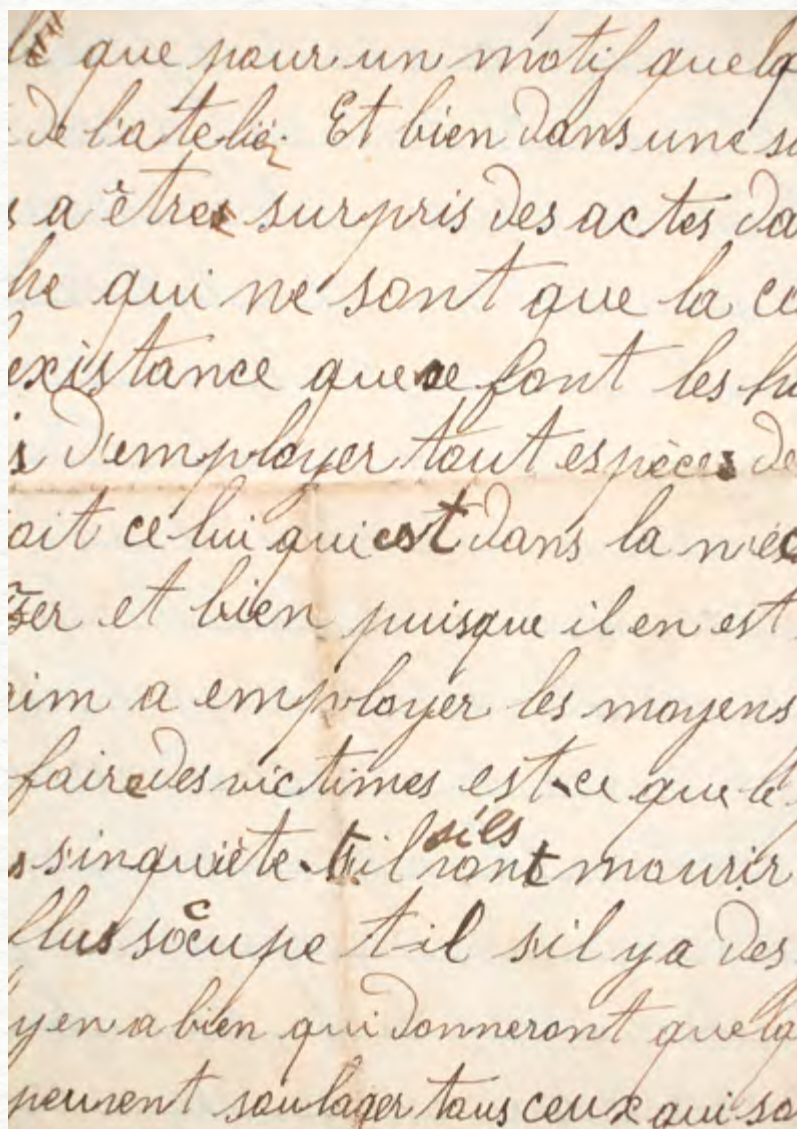 que pour un motif quelq
de l'atelier. Et bien dans une s
s a êtres surpris des actes da
he qui ne sont que la co
existance que se font les h
s d'employer tout espèces de
oit celui qui est dans la néc
zer et bien puisque il en est
aim a employer les moyens
faire des victimes est-ce que le
s sinquiète-t-il s'ils vont mourir
llus soccupe t il s'il y a des
y en a bien qui donneront quelq
peuvent soulager tous ceux qui so